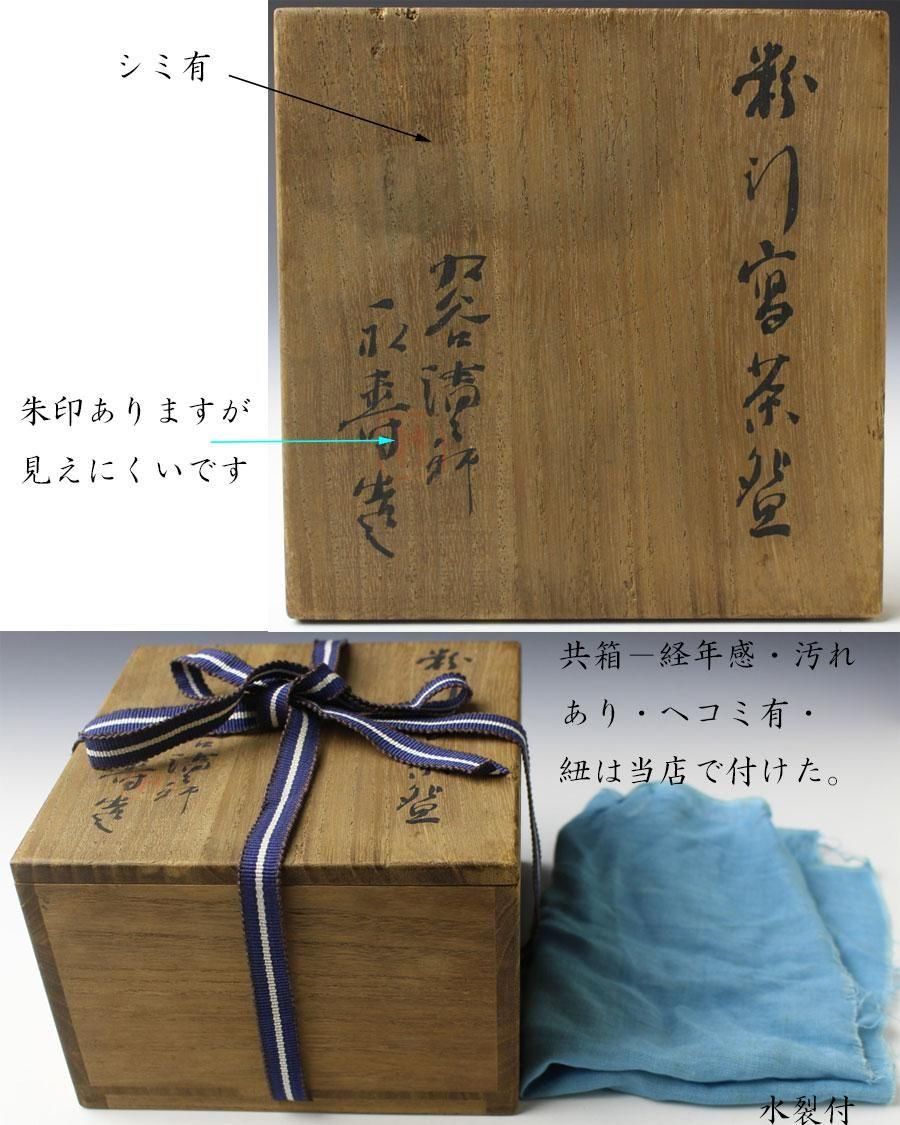 シミ有
粉引写茶盌
朱印ありますが
見えにくいです
共箱－経年感・汚れ
あり・ヘコミ有・
紐は当店で付けた。
水裂付